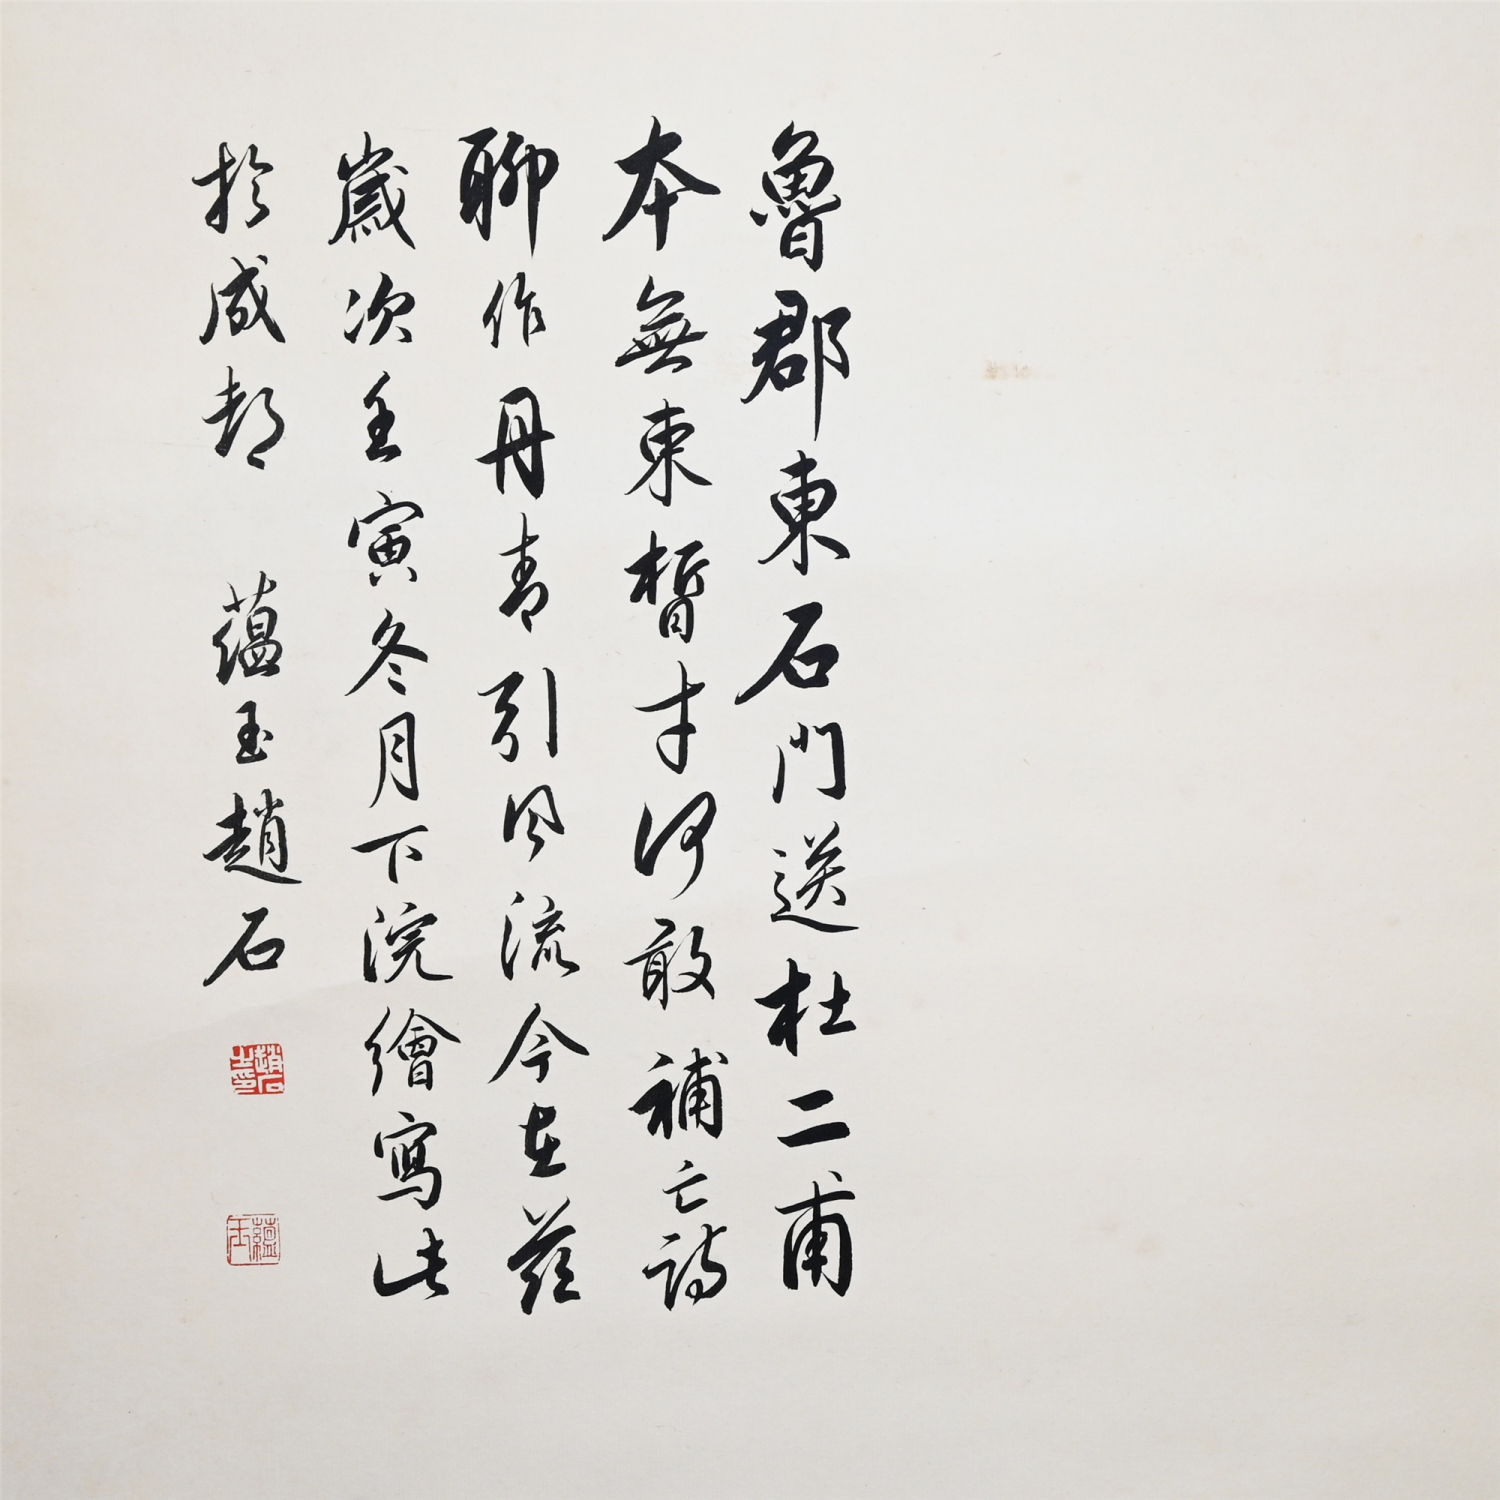 魯郡東石門送杜二甫
本無束晳才何敢補亡詩
聊作丹青引風流今在茲
歲次壬寅冬月下浣繪寫此
於成都 蘊玉趙石
趙石之印
蘊玉